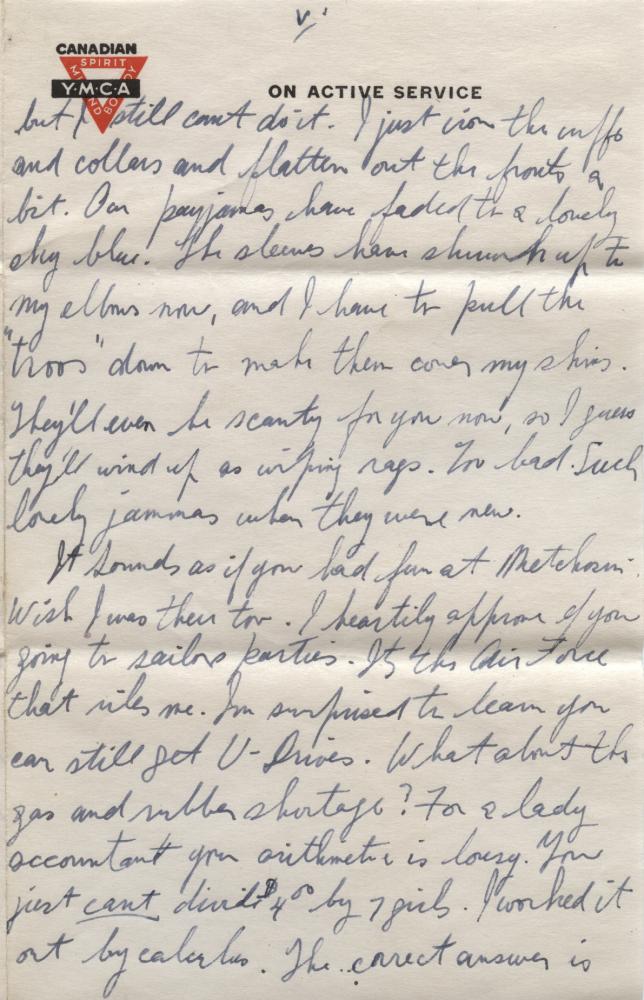 v.
CANADIAN
SPIRIT
MIND
BODY
Y·M·C·A
ON ACTIVE SERVICE
but I still cant do it. I just iron the cuffs
and collars and flatten out the fronts a
bit. Our payjamas have faded to a lovely
sky blue. The sleeves have shrunk up to
my elbows now, and I have to pull the
"troos" down to make them cover my shins.
They'll even be scanty for you now, so I guess
they'll wind up as wiping rags. Too bad. Such
lovely jammas when they were new.
It sounds as if you had fun at Metchosin.
Wish I was there too. I heartily approve of you
going to sailors parties. Its the Air Force
that riles me. Im surprised to learn you
can still get U-Drives. What about the
gas and rubber shortage? For a lady
accountant your arithmetic is lousy. You
just cant divide $4.00 by 7 girls. I worked it
out by calculus. The correct answer is